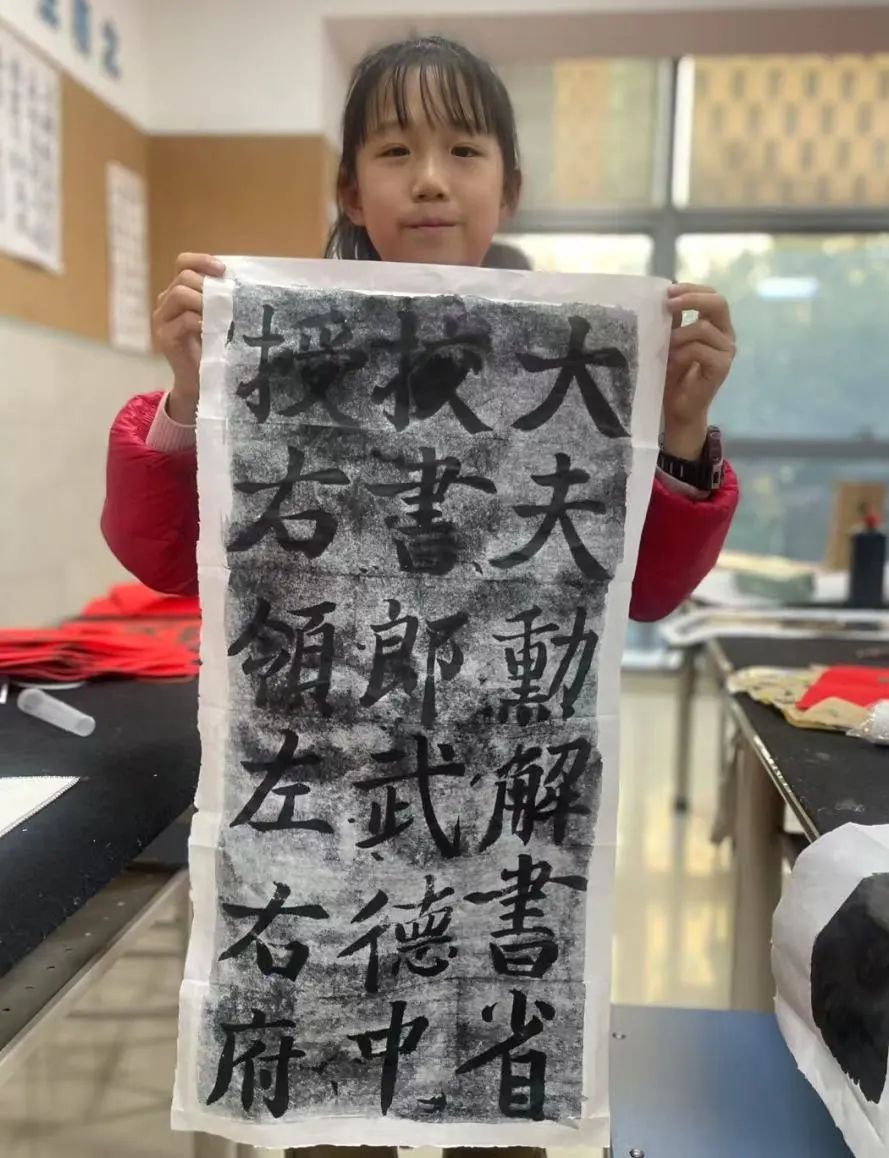 大夫勳解書省
挍書郎武德中
授右領左右府